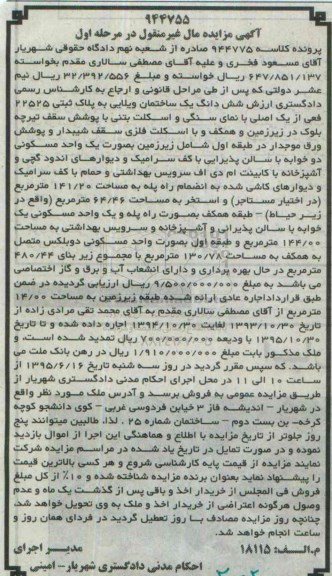 ۹۴۴۷۵۵
آگهی مزایده مال غیرمنقول در مرحله اول
پرونده کلاسه ۹۴۴۷۷۵ صادره از شعبه نهم دادگاه حقوقی شهریار
آقای مسعود فخری و علیه آقای مصطفی سالاری مقدم بخواسته
۶۴۷/۸۵۱/۱۳۷ ریال خواسته و مبلغ ۳۲/۳۹۲/۵۵۶ ریال نیم
عشر دولتی که پس از طی مراحل قانونی و ارجاع به کارشناس رسمی
دادگستری ارزش شش دانگ یک ساختمان ویلایی به پلاک ثبتی ۲۲۵۲۵
فعی از یک اصلی با نمای سنگی و اسکلت بتنی با پوشش سقف تیرچه
بلوک در زیرزمین و همکف و با اسکلت فلزی سقف شیبدار و پوشش
ورق موجدار در طبقه اول شامل زیرزمین بصورت یک واحد مسکونی
دو خوابه با سالن پذیرایی با کف سرامیک و دیوارهای اندود گچی و
آشپزخانه با کابینت ام دی اف سرویس بهداشتی و حمام با کف سرامیک
و دیوارهای کاشی شده به انضمام راه پله به مساحت ۱۴۱/۲۰ مترمربع
(در اختیار مستاجر) و استخر به مساحت ۶۴/۴۶ مترمربع (واقع در
زیر حیاط) – طبقه همکف بصورت راه پله و یک واحد مسکونی یک
خوابه با سالن پذیرانی و آشپزخانه و سرویس بهداشتی به مساحت
۱۴۴/۰۰ مترمربع و طبقه اول بصورت واحد مسکونی دوبلکس متصل
به همکف به مساحت ۱۳۰/۷۸ مترمربع با مجموع زیر بنای ۴۸۰/۴۴
مترمربع در حال بهره برداری و دارای انشعاب آب و برق و گاز اختصاصی
می باشد به مبلغ ۹/۵۰۰/۰۰۰/۰۰۰ ریال ارزیابی گردیده در ضمن
طبق قرارداداجاره عادی ارائه شده طبقه زیرزمین به مساحت ۱۴/۰۰
مترمربع از آقای مصطفی سالاری مقدم به آقای محمد تقی مرادی زاده از
تاریخ ۱۳۹۳/۱۰/۳۰ لغایت ۱۳۹۴/۱۰/۳۰ اجاره داده شده و تا تاریخ
۱۳۹۵/۱۰/۳۰ با ودیعه ۲۰۰/۰۰۰/۰۰۰ ریال تمدید شده است، و
ملک مذکور بابت مبلغ ۱/۹۱۰/۰۰۰/۰۰۰ ریال در رهن بانک ملت می
باشد. که سپس مقرر گردید در روز سه شنبه تاریخ ۱۳۹۵/۶/۱۶ از
ساعت ۱۰ الی ۱۱ در محل اجرای احکام مدنی دادگستری شهریار از
طریق مزایده عمومی به فروش برسد و آدرس ملک مورد نظر واقع
در شهریار – اندیشه فاز ۳ خیابن فردوسی غربی – کوی دانشجو کوچه
کرخه- بن بست دوم – ساختمان شماره ۲۵ . لذا، طالبین میتوانند پنج
روز جلوتر از تاریخ مزایده با اطلاع و هماهنگی این اجرا از اموال بازدید
نموده و در صورت تمایل در تاریخ یاد شده در مراسم مزایده شرکت
نمایند مزایده از قیمت پایه کارشناسی شروع و هر کسی بالاترین قیمت
را پیشنهاد نماید بعنوان برنده مزایده شناخته شده و ۱۰٪ از کل مبلغ
فروش فی المجلس از خریدار اخذ و باقی پس از گذشت یک ماه و عدم
وصول هرگونه اعتراضی از خریدار اخذ و ملک به وی تحویل خواهد شد.
چنانچه روز مزایده مصادف با روز تعطیل گردید در فردای همان روز و
ساعت انجام خواهد شد.
م.الف: ۱۸۱۱۵ مدیر اجرای
احکام مدنی دادگستری شهریار - امینی